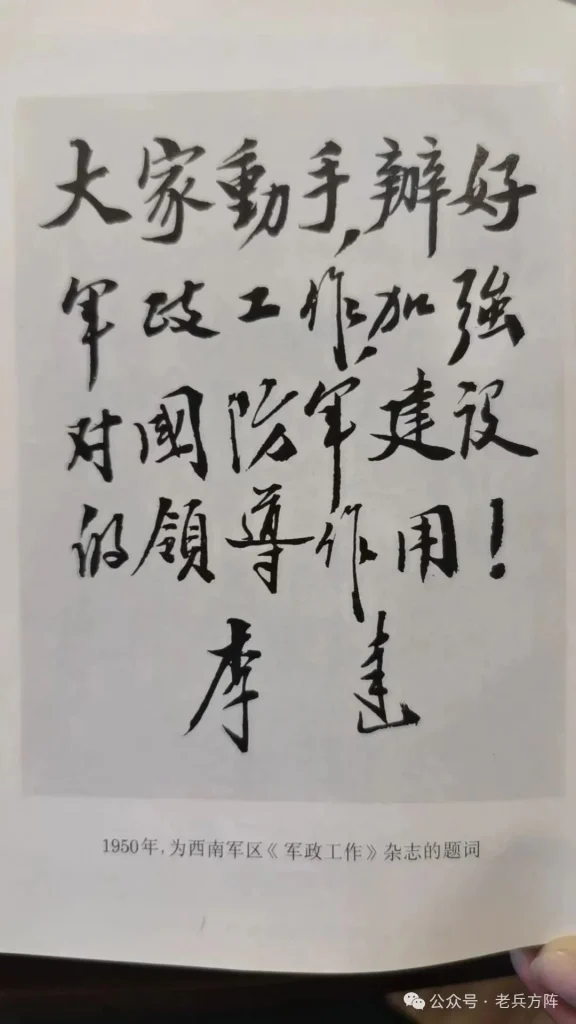 大家動手,辦好
军政工作,加強
对國防军建设
的領導作用!
李達
1950年,为西南军区《军政工作》杂志的题词
公众号·老兵方阵